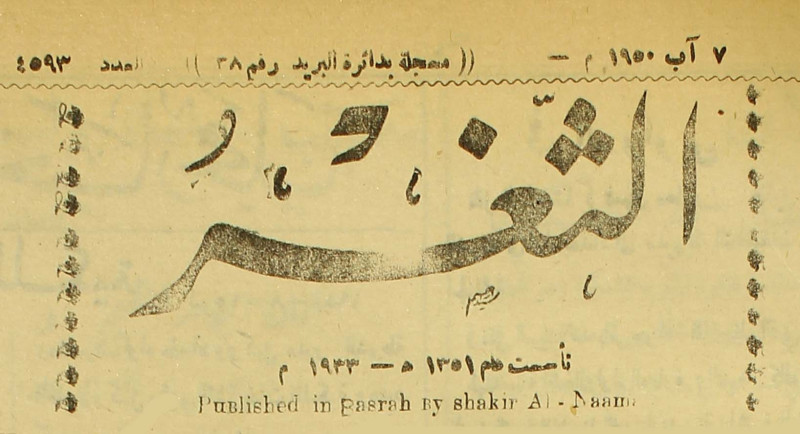 ٧ آب ١٩٥٠ م — (( مسجلة بدائرة البريد رقم ٢٨ )) العدد ٤٥٩٣
الثغر
تأسست عام ١٣٥١ هـ — ١٩٣٣ م
Published in Basrah By shakir Al-Naama